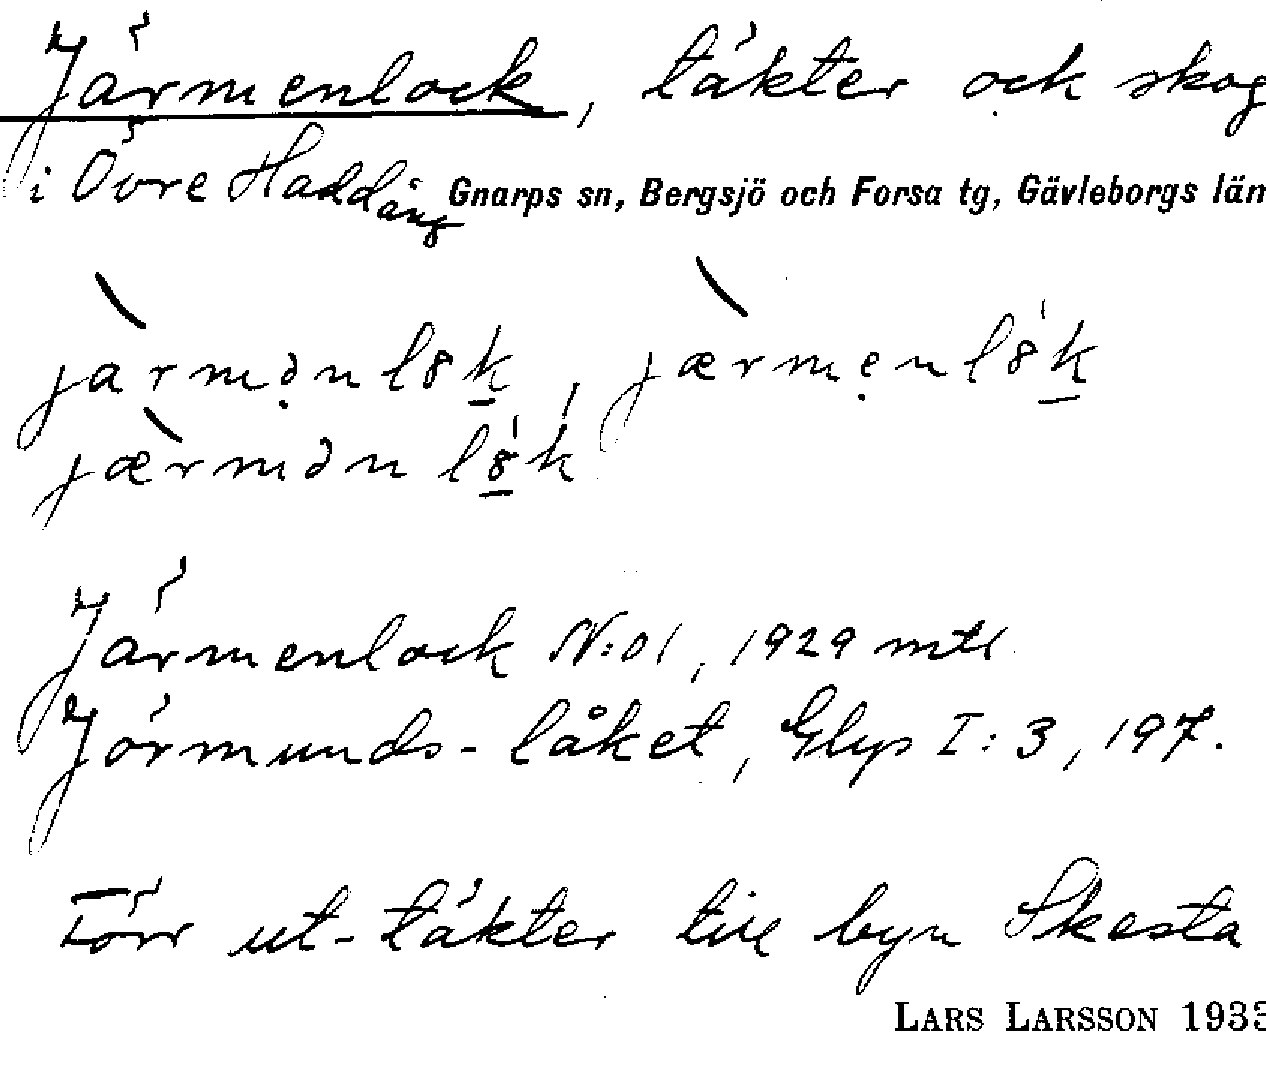 Järmenlock, täkter och skog
i Övre Haddäng Gnarps sn, Bergsjö och Forsa tg, Gävleborgs län
jàrmənlȣk, jæ̀rmenlȣ́k
jæ̀rmən lȣ́k
Järmenlock N:o 1, 1929 mtl
Jörmunds-låket, Glys I: 3, 197.
Förr ut-täkter till byn Skesta
LARS LARSSON 1933